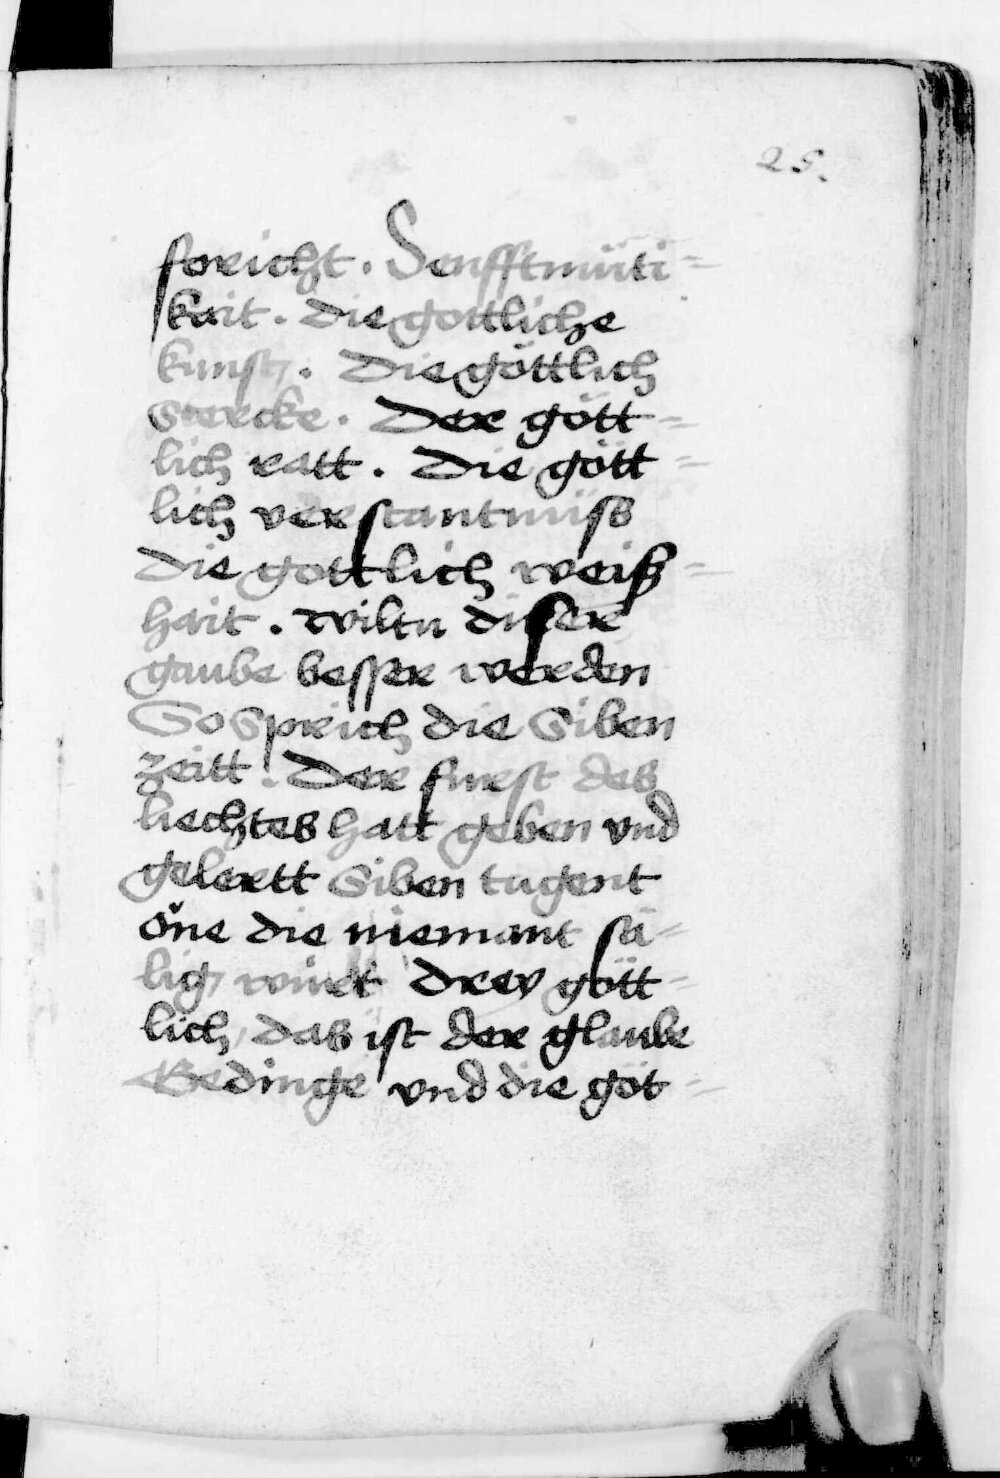 25.
foricht. Senfftmüti=
kait. Die gottliche
kunst. Die göttlich
Stercke. Der gött=
lich ratt. Die gött=
lich verstantnüsß
die gottlich weiß=
hait. wiltu diser
gaube besser werden
So Sprich die Siben
zeitt. Der furst des
liechtes hatt geben vnd
gelertt Siben tugent
öne die niemant sä=
lig, wirdt drey gött=
lich, das ist der glaube
Gedinge vnd die göt=